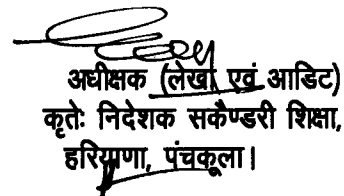 अधीक्षक (लेखा एवं आडिट)
कृतेः निदेशक सकैण्डरी शिक्षा,
हरियाणा, पंचकूला।